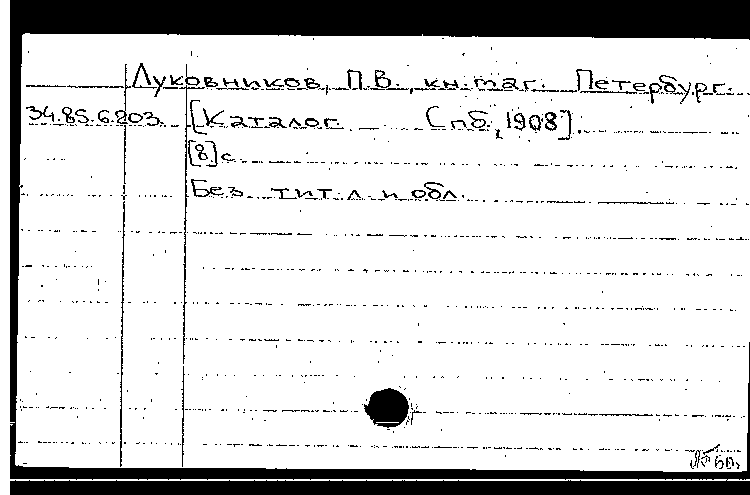 Луковников, П.В., кн. маг. Петербург.
34.85.6.203. [Каталог. Спб., 1908].
[8] с.
Без тит. л. и обл.